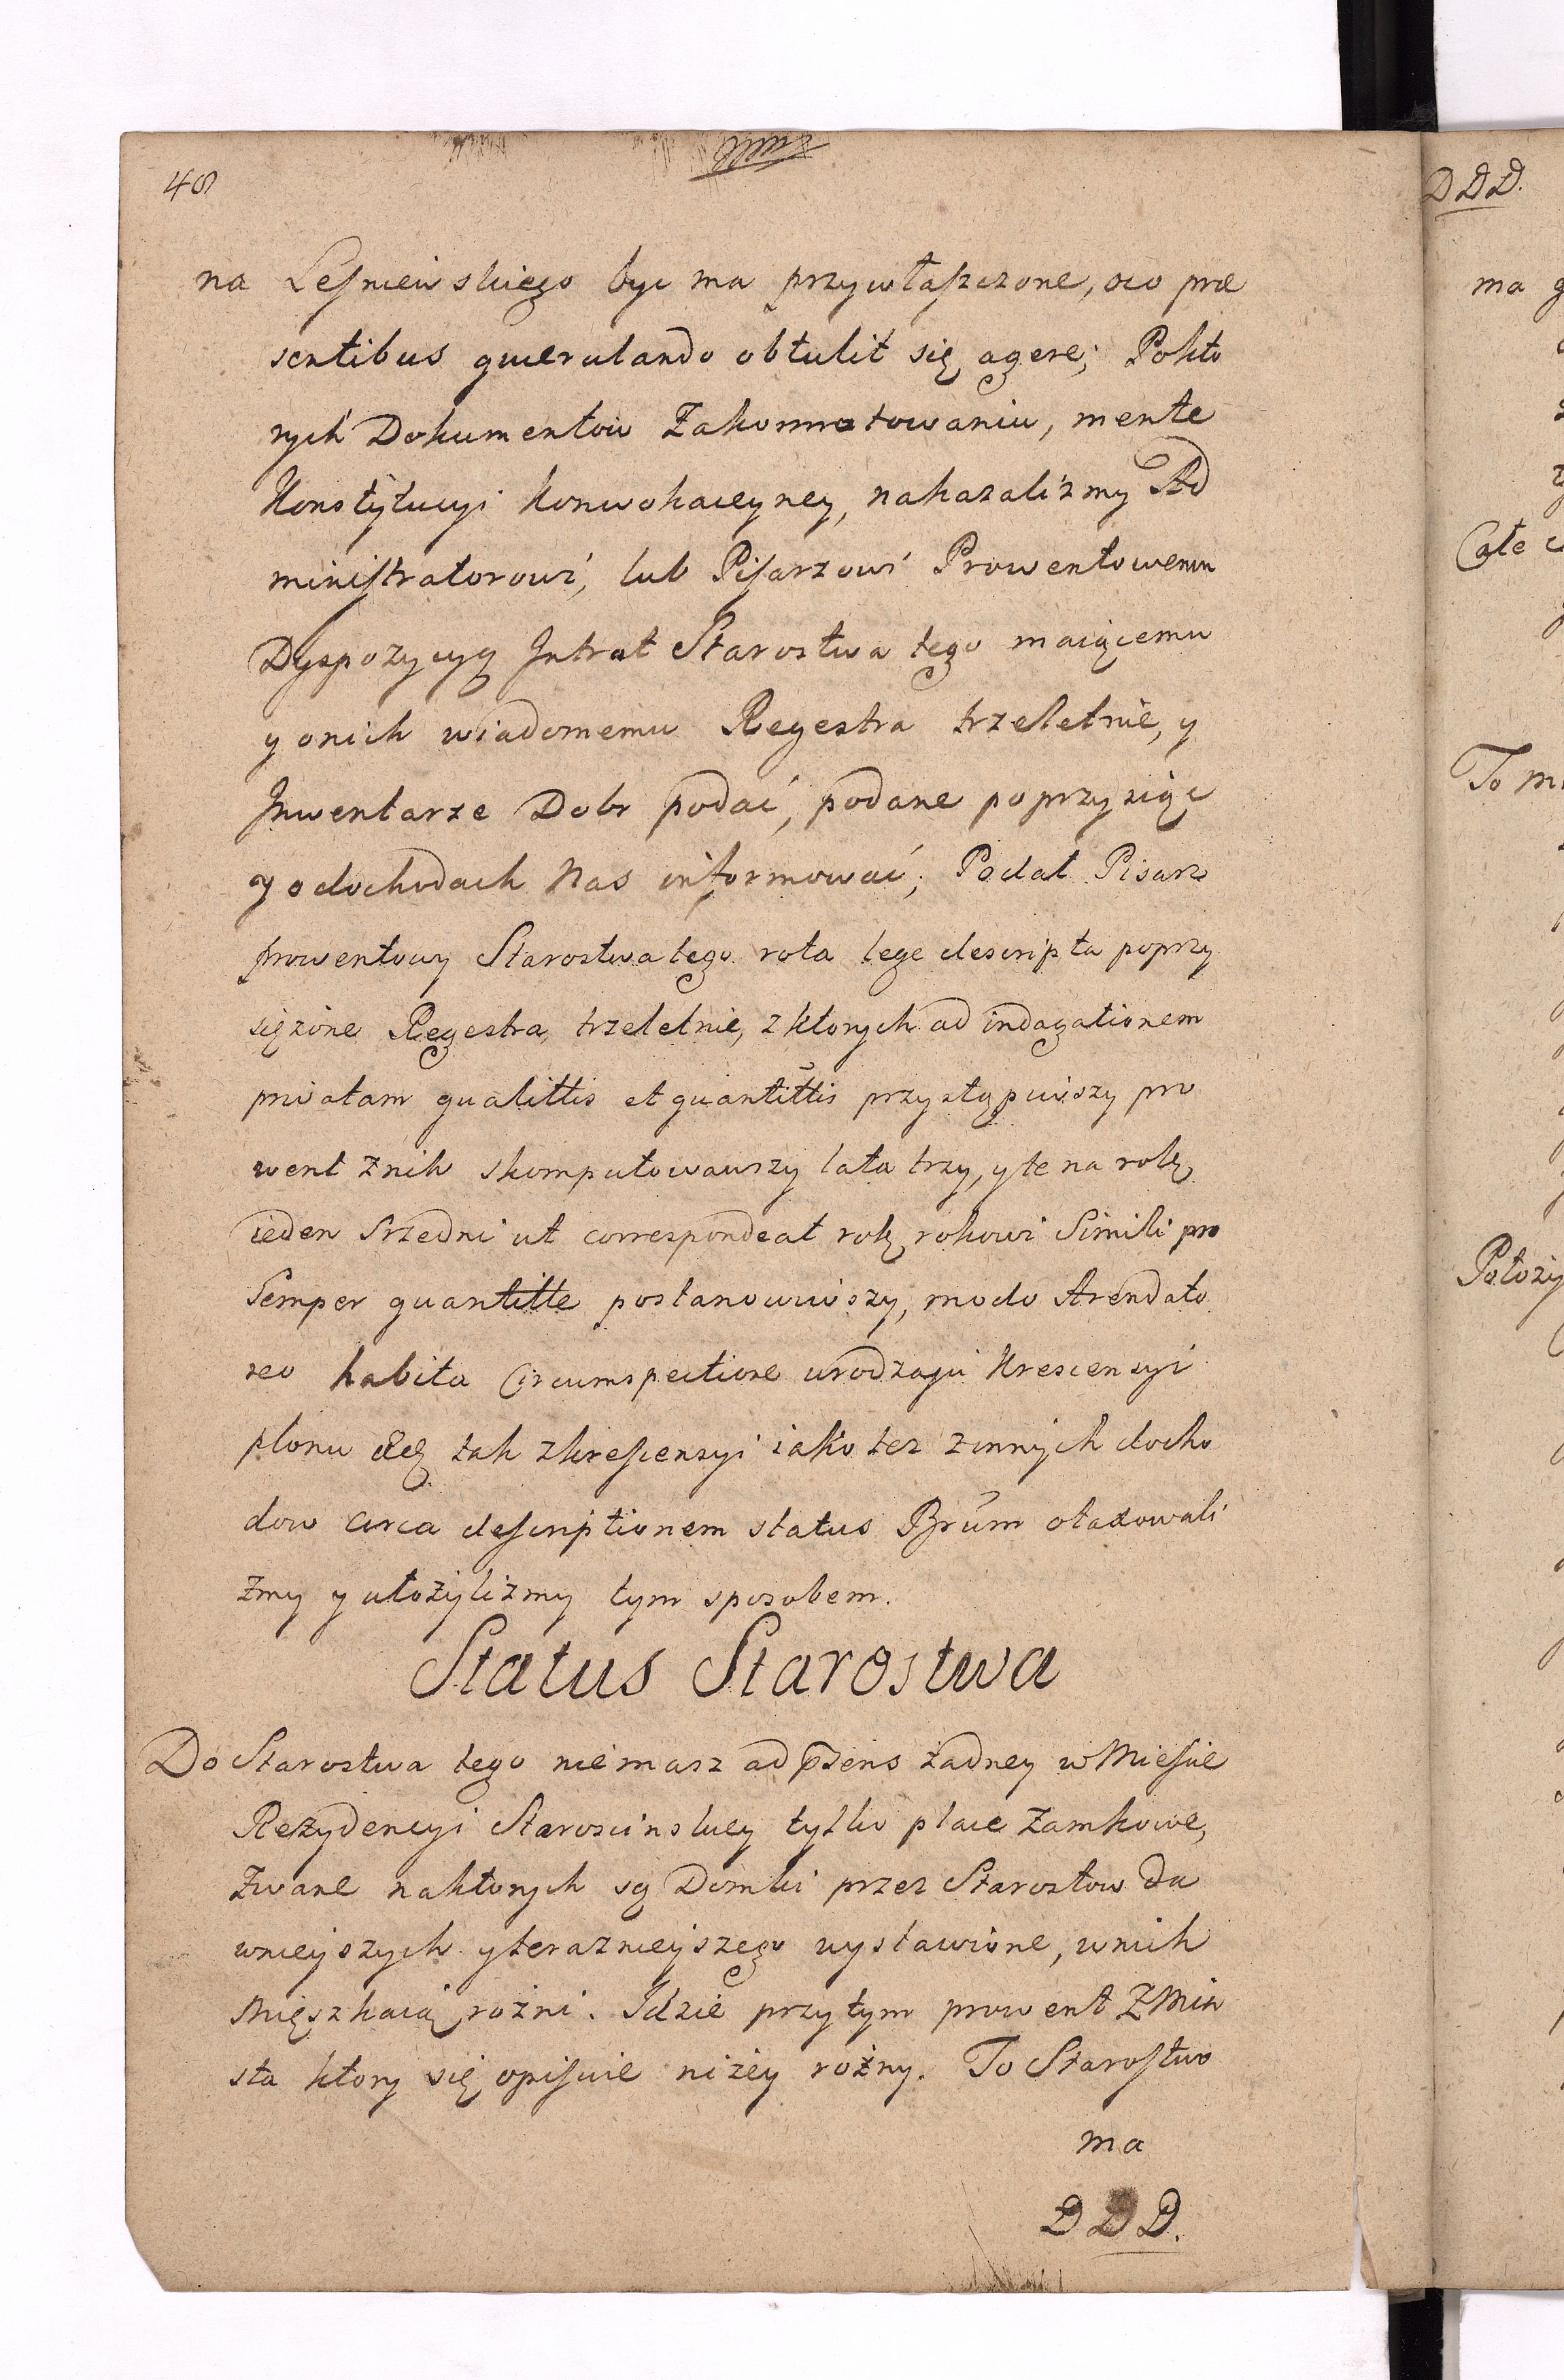 48
na Leśniewskiego byc ma przywłaszczone, oco præ
sentibus querulando obtulit się agere; Pokto
rych Dokumentow Zakonnotowaniu, mente
Konstytucyi Konwokacyiney, nakazaliźmy Ad
ministratorowi, lub Pisarzowi Prowentowemu
Dyspozycyą Intrat Starostwa tego maiącemu
y onich wiadomemu Regestra trzeletnie, y
Inwentarze Dobr podać, podane poprzysiąc
y odochodach Nas informować; Podał Pisarz
prowentowy Starostwa tego rota lege descripta poprzy
siężone Regestra trzeletnie, z ktorych ad indagationem
privatam qualittis et quantittis przystąpiwszy pro
went znih skomputowawszy lata trzy, yte na rok
ieden srzedni ut correspondeat rok rokowi Simili pro
Semper quantitte postanowiwszy, modo Arendato
reo habita Circumspectione urodzaju Krescensyi
plonu &c tak zkrescensyi iako tez zinnych docho
dow circa descriptionem status Brūm otaxowali
zmy y ułożyliźmy tym sposobem.
Status Starostwa
Do Starostwa tego niemasz ad p̄sens żadney w Miescie
Rezydencyi Staroscinskiey tylko place Zamkowe,
Zwane naktorych są Domki przez Starostow da
wnieyszych yteraznieyszego wystawione, wnich
Mięszkaią rożni. Idzie przytym prowent z Mia
sta ktory się opisuie niżey rożny. To Starostwo
ma
DDD.
DDD.
ma
Całe
To
Położy